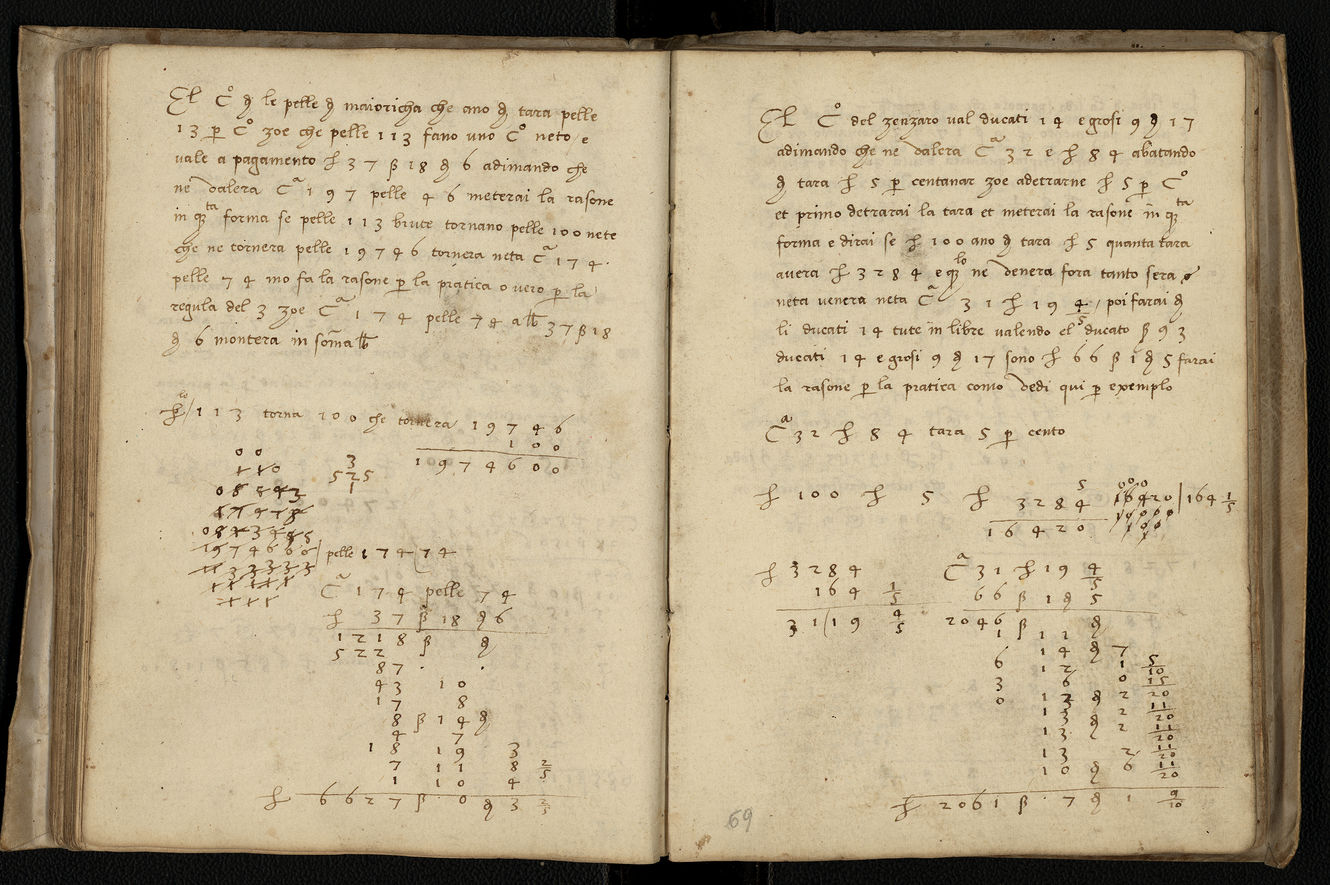 El Cº ꝺ le pelle ꝺ maioricha che ano ꝺ tara pelle
13 ꝑ Cº zoe che pelle 113 fano uno Cº neto / e
vale a pagamento ℔ 37 ß 18 ꝺ 6 adimando che
ne valera Cª 197 pelle 46 meterai la rasone
in qͣta forma se pelle 113 brute tornano pelle 100 nete
che ne tornera pelle 19746 tornera neta Cª 174.
pelle 74 mo fa la rasone ꝑ la pratica o vero ꝑ la
regula del 3 zoe Cª 174 pelle 74 a ℔ 37 ß 18
ꝺ 6 montera in soma ℔
113 torna 100 che tornera 19746
100
1974600
3
525
1
pelle 174 74
Cª 174 pelle 74
℔ 37 ß 18 ꝺ 6
1218 ß ꝺ
522
87 . .
43 10
17 8
8 ß 14 ꝺ
4 7
18 19 3
7 11 8 2/5
1 10 4
℔ 6627 ß 0 ꝺ 3 2/5
El Cº del zenzaro val ducati 14 e grosi 9 ꝺ 17
adimando che ne valera Cª 32 e ℔ 84 abatando
ꝺ tara ℔ 5 ꝑ centanar zoe adetrarne ℔ 5 ꝑ Cº
et primo detrarai la tara et meterai la rasone in qͣta
forma e dirai se ℔ 100 ano ꝺ tara ℔ 5 quanta tara
avera ℔ 3284 e qlo ne venera fora tanto sera
neta venera neta Cª 31 ℔ 19 4/5 / poi farai ꝺ
li ducati 14 tute in libre valendo el ducato ß 93
ducati 14 e grosi 9 ꝺ 17 sono ℔ 66 ß 1 ꝺ 5 farai
la rasone ꝑ la pratica como vedi qui ꝑ exemplo
Cª 32 ℔ 84 tara 5 ꝑ cento
℔ 100 ℔ 5 ℔ 3284 16420 | 164 1/5
5
16420
℔ 3284 Cª 31 ℔ 19 4/5
164 1/5 66 ß 1 ꝺ 5
31/19 4/5 2046 ß ꝺ
1 11
6 14 ꝺ 7
3 12 1 5/10
0 6 0 15/20
12 ꝺ 2 11/20
13 ꝺ 2 11/20
13 2 11/20
13 2 11/20
10 ꝺ 6
℔ 2061 ß 7 ꝺ 1 9/10
69